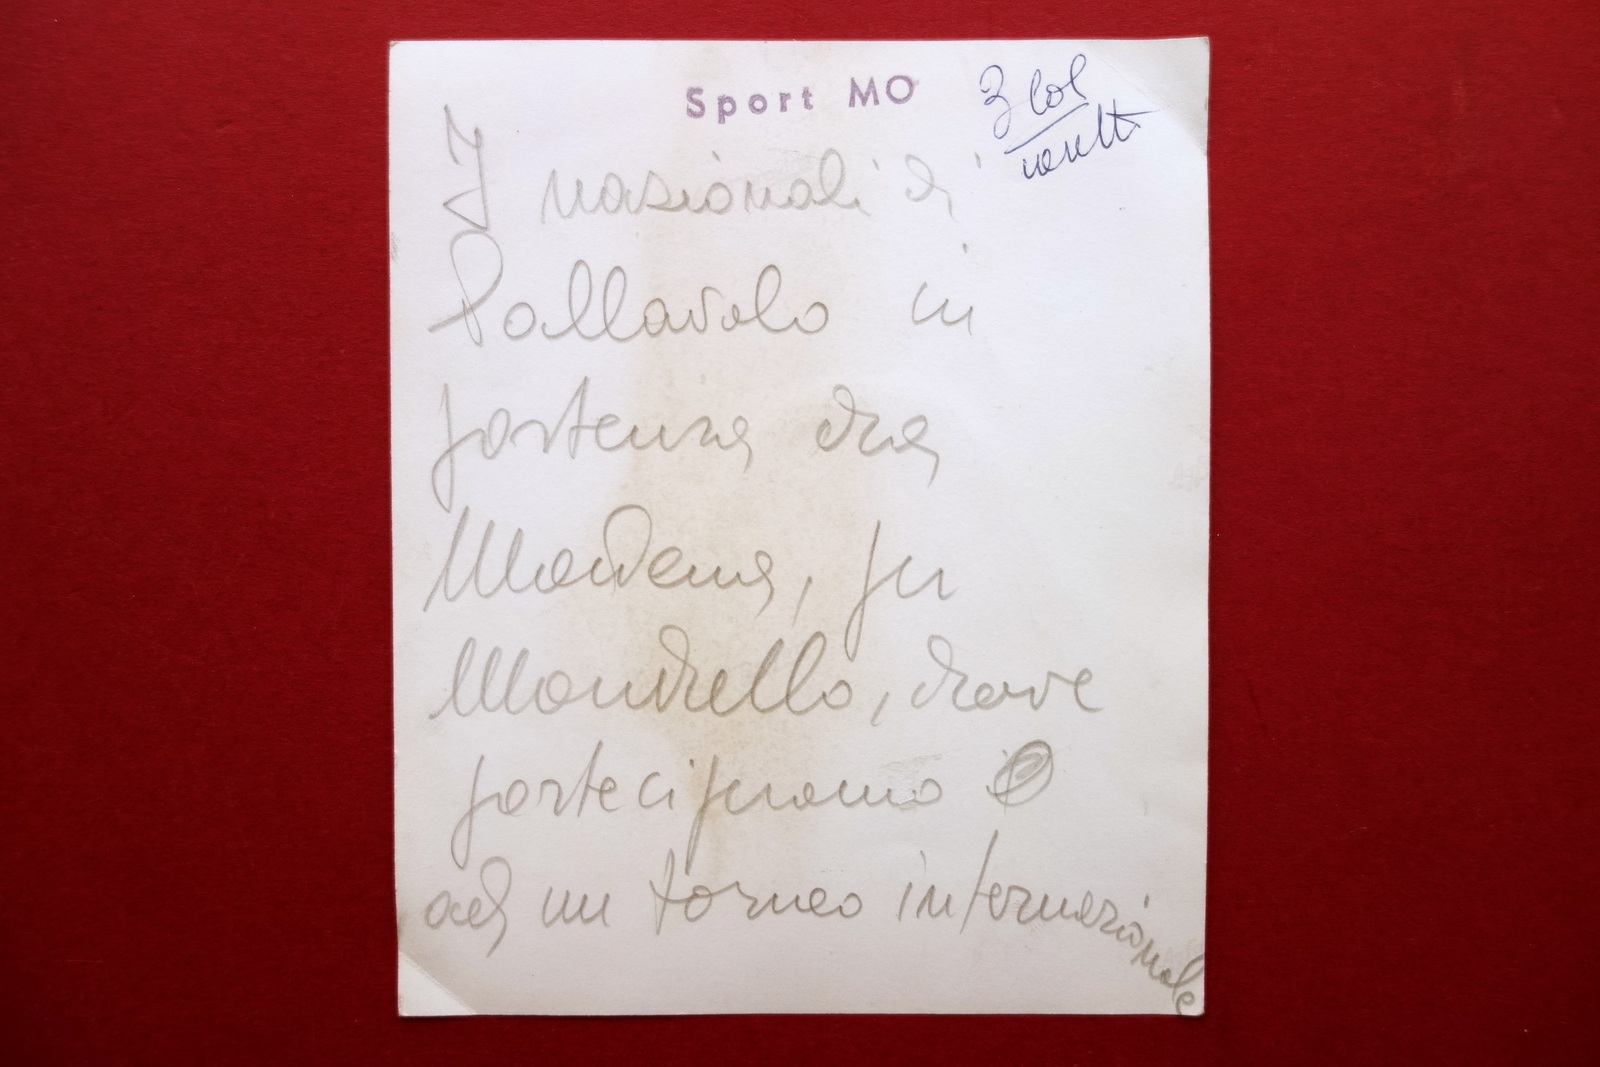 Sport MO
3 col
I nazionali di
Pallavolo in
partenza da
Modena, per
Mondello, dove
parteciperanno
ad un torneo internazionale